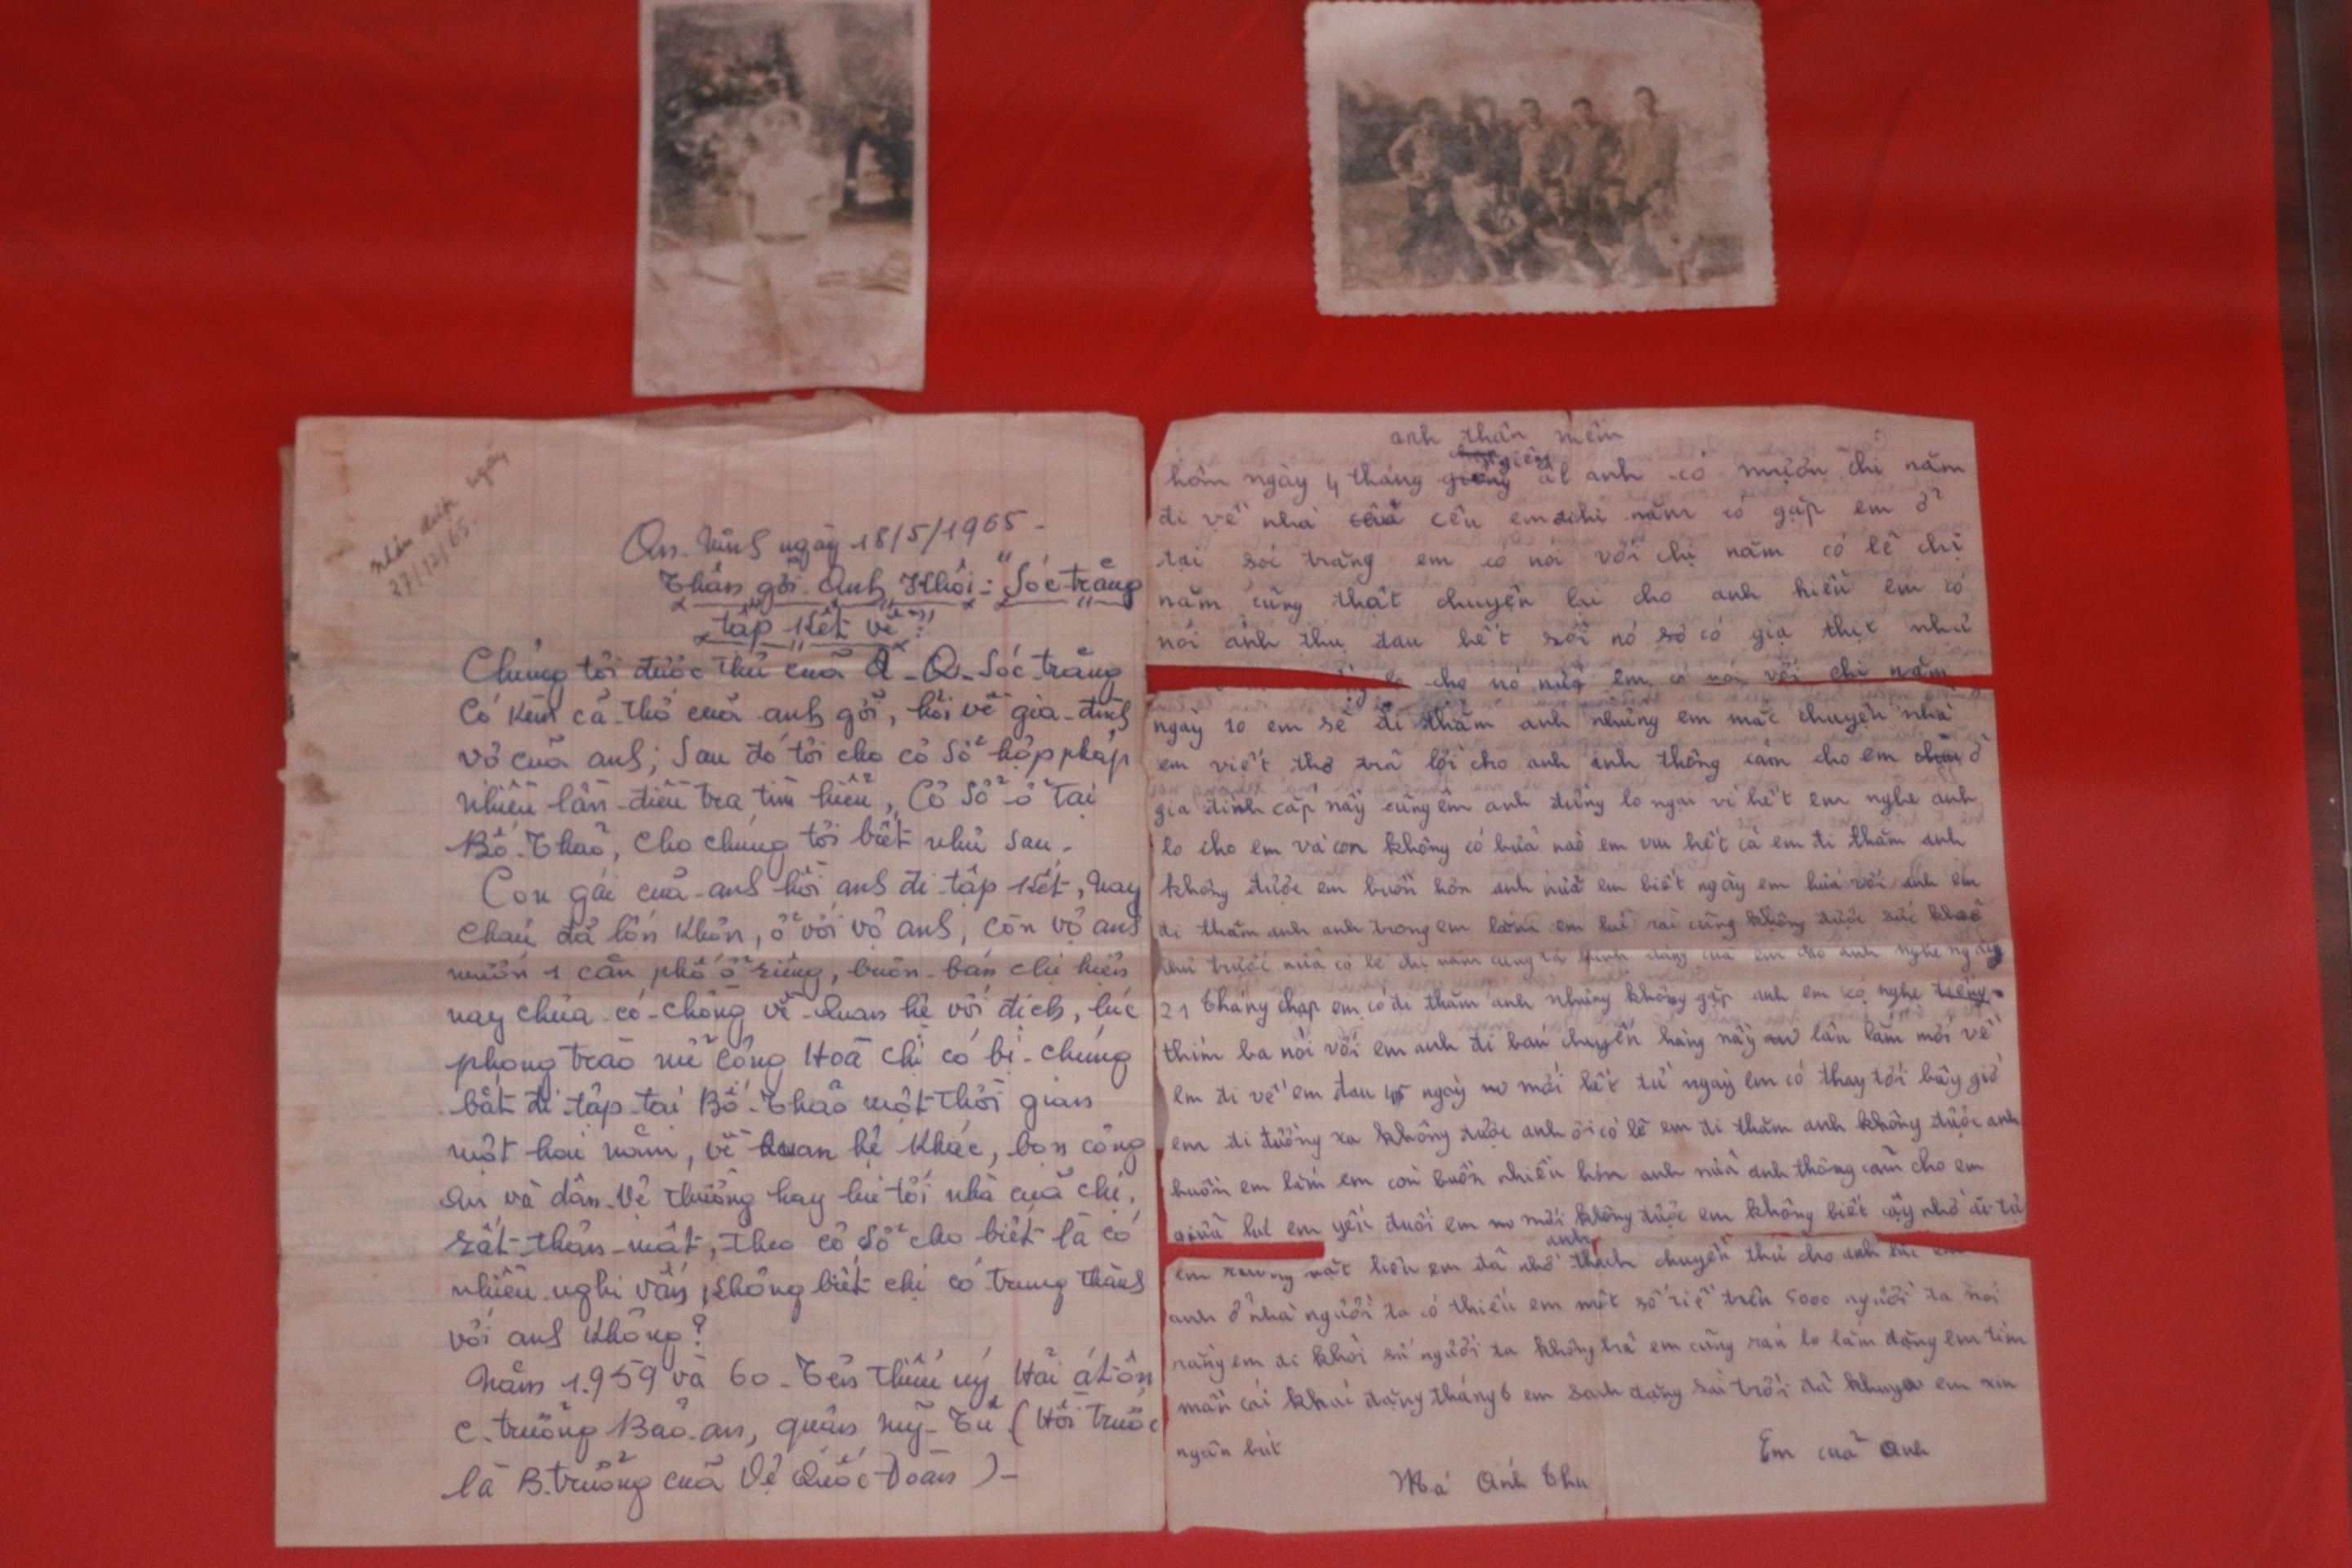 nhân được ngày
27/12/65.
An. Ninh ngày 18/5/1965 -
Thân gởi Anh Khôi: "Sóc trăng
tập kết về"!
Chúng tôi được thư của A-Q-Sóc trăng
có kèm cả thơ của anh gởi, hỏi về gia-đình
vợ của anh; Sau đó tôi cho cơ sở hợp pháp
nhiều lần điều tra tìm hiểu, Cơ Sở ở tại
Bố-Thảo, cho chúng tôi biết như sau -
Con gái của anh hồi anh đi tập kết, nay
cháu đã lớn khôn, ở với vợ anh, còn vợ anh
mướn 1 căn phố ở riêng, buôn bán chị hiện
nay chưa có chồng về quan hệ với địch, lúc
phong trào nữ Cộng Hoà chị có bị chúng
bắt đi tập tại Bố-Thảo một thời gian
một hai năm, về quan hệ khác, bọn công
an và dân-vệ thường hay lui tới nhà của chị,
rất thân mật, theo cơ sở cho biết là có
nhiều nghi vấn, không biết chị có trung thành
với anh không?
Năm 1.959 và 60 - Tên thiếu uý Hải
C. trưởng Bảo-an, quận Mỹ-Tú (Hồi trước
là B.trưởng của Vệ Quốc Đoàn) -
anh thân mến
hôm ngày 4 tháng giêng al anh có mượn chị năm
đi về nhà cêu em chị năm có gặp em ở
tại sóc trăng em có nói với chị năm có lẽ chị
năm cũng thật chuyện lại cho anh hiểu em có
nói ánh thu đau hết sởi nó sở có gia thụt như
cho nó nữa em có nói với chị năm
ngày 10 em sẽ đi thăm anh nhưng em mắc chuyện nhà
em viết thơ trả lời cho anh anh thông cảm cho em ở
gia đình cấp này cũng êm anh đừng lo ngại vì hết em nghe anh
lo cho em và con không có bửa nào em vui hết cả em đi thăm anh
không được em buồn hơn anh nữa em biết ngày em hứa với anh em
đi thăm anh anh trong em lắm em lui rai cũng không được sức khoẻ
như trước nữa có lẽ chị năm cũng tả hình dáng của em cho anh nghe ngày
21 tháng chạp em có đi thăm anh nhưng không gặp anh em có nghe tiếng
thím ba nói với em anh đi ban chuyến hàng này lâu lắm mới về
em đi về em đau 45 ngày mới hết từ ngày em có thay tới bây giờ
em đi đường xa không được anh ôi có lẽ em đi thăm anh không được anh
buồn em lắm em còn buồn nhiều hơn anh nữa anh thông cảm cho em
giữa lúc em yếu đuối em mới không được em không biết cậy nhờ ai từ
em đã nhờ anh thích chuyển thư cho anh lúc
anh ở nhà người ta có thiếu em một số tiề trên 5000 người ta nói
rằng em đi khỏi sứ người ta không trả em cũng rán lo làm đặng em tìm
mần cái khai dạng tháng 6 em sanh dạng sài trời đã khuya em xin
ngần bút
Em của anh
Má Ánh Thu